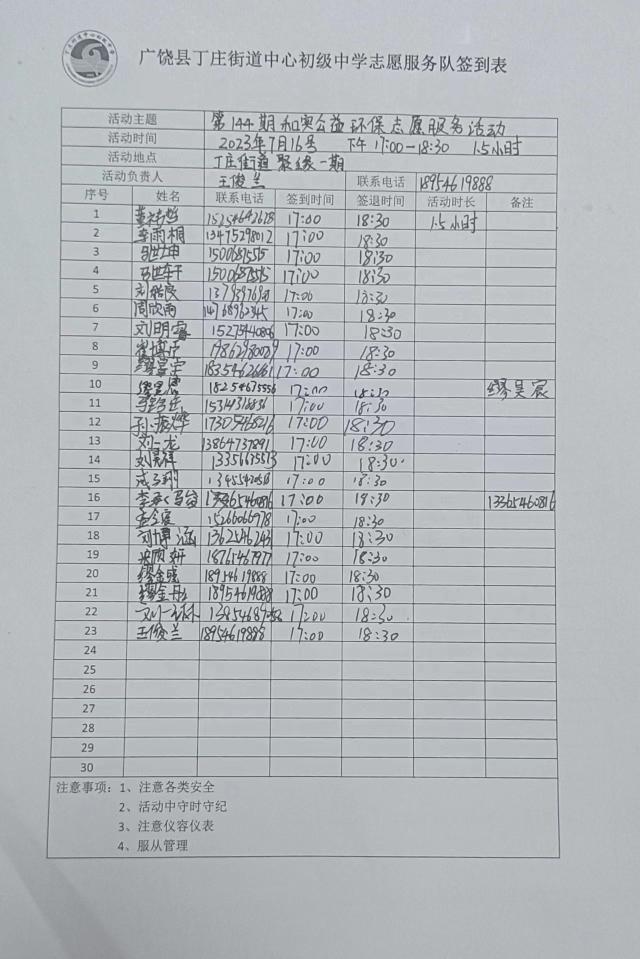 广饶县丁庄街道中心初级中学志愿服务队签到表
活动主题 第144期和奥公益环保志愿服务活动
活动时间 2023年7月16号 下午 17:00-18:30 1.5小时
活动地点 丁庄街道聚缘一期
活动负责人 王俊兰 联系电话 18954619888
序号 姓名 联系电话 签到时间 签退时间 活动时长 备注
1 17:00 18:30 1.5小时
2 李雨桐 13475298012 17:00 18:30
3 马世坤 17:00 18:30
4 17:00 18:30
5 17:00 18:30
6 周欣雨 14768962345 17:00 18:30
7 刘明睿 15275440806 17:00 18:30
8 崔博 17:00 18:30
9 17:00 18:30
10 18254675556 17:00 18:30 缪昊宸
11 17:00 18:30
12 17305468216 17:00 18:30
13 刘一龙 13864737891 17:00 18:30
14 刘昊祥 13356675513 17:00 18:30
15 17:00 18:30
16 17:00 18:30 13365460816
17 15266066978 17:00 18:30
18 刘博涵 17:00 18:30
19 18765467977 17:00 18:30
20 缪金晓 18954619888 17:00 18:30
21 缪金彤 18954619888 17:00 18:30
22 17:00 18:30
23 王俊兰 18954619888 17:00 18:30
24
25
26
27
28
29
30
注意事项：1、注意各类安全
2、活动中守时守纪
3、注意仪容仪表
4、服从管理